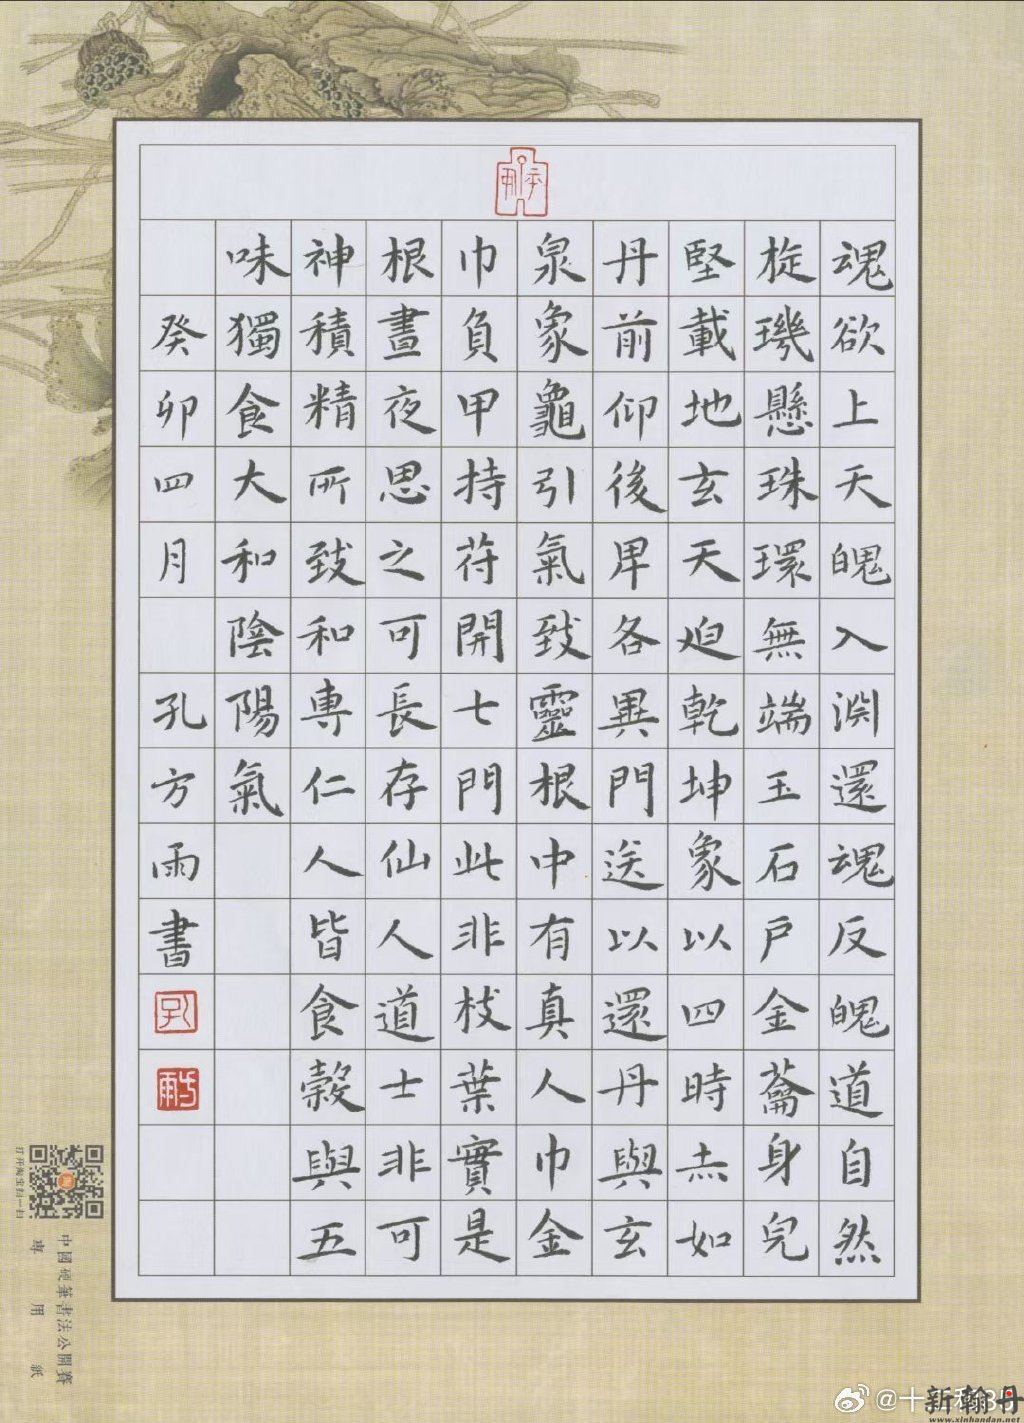 魂欲上天魄入淵還魂反魄道自然
旋璣懸珠環無端玉石戶金籥身皃
堅載地玄天迫乾坤象以四時赤如
丹前仰後卑各異門送以還丹與玄
泉象龜引氣致靈根中有真人巾金
巾負甲持苻開七門此非枝葉實是
根晝夜思之可長存仙人道士非可
神積精所致和專仁人皆食穀與五
味獨食大和陰陽氣
癸卯四月 孔方雨書
中國硬筆書法公開賽
專用紙
打开淘宝扫一扫
新翰丹
www.xinhandan.net